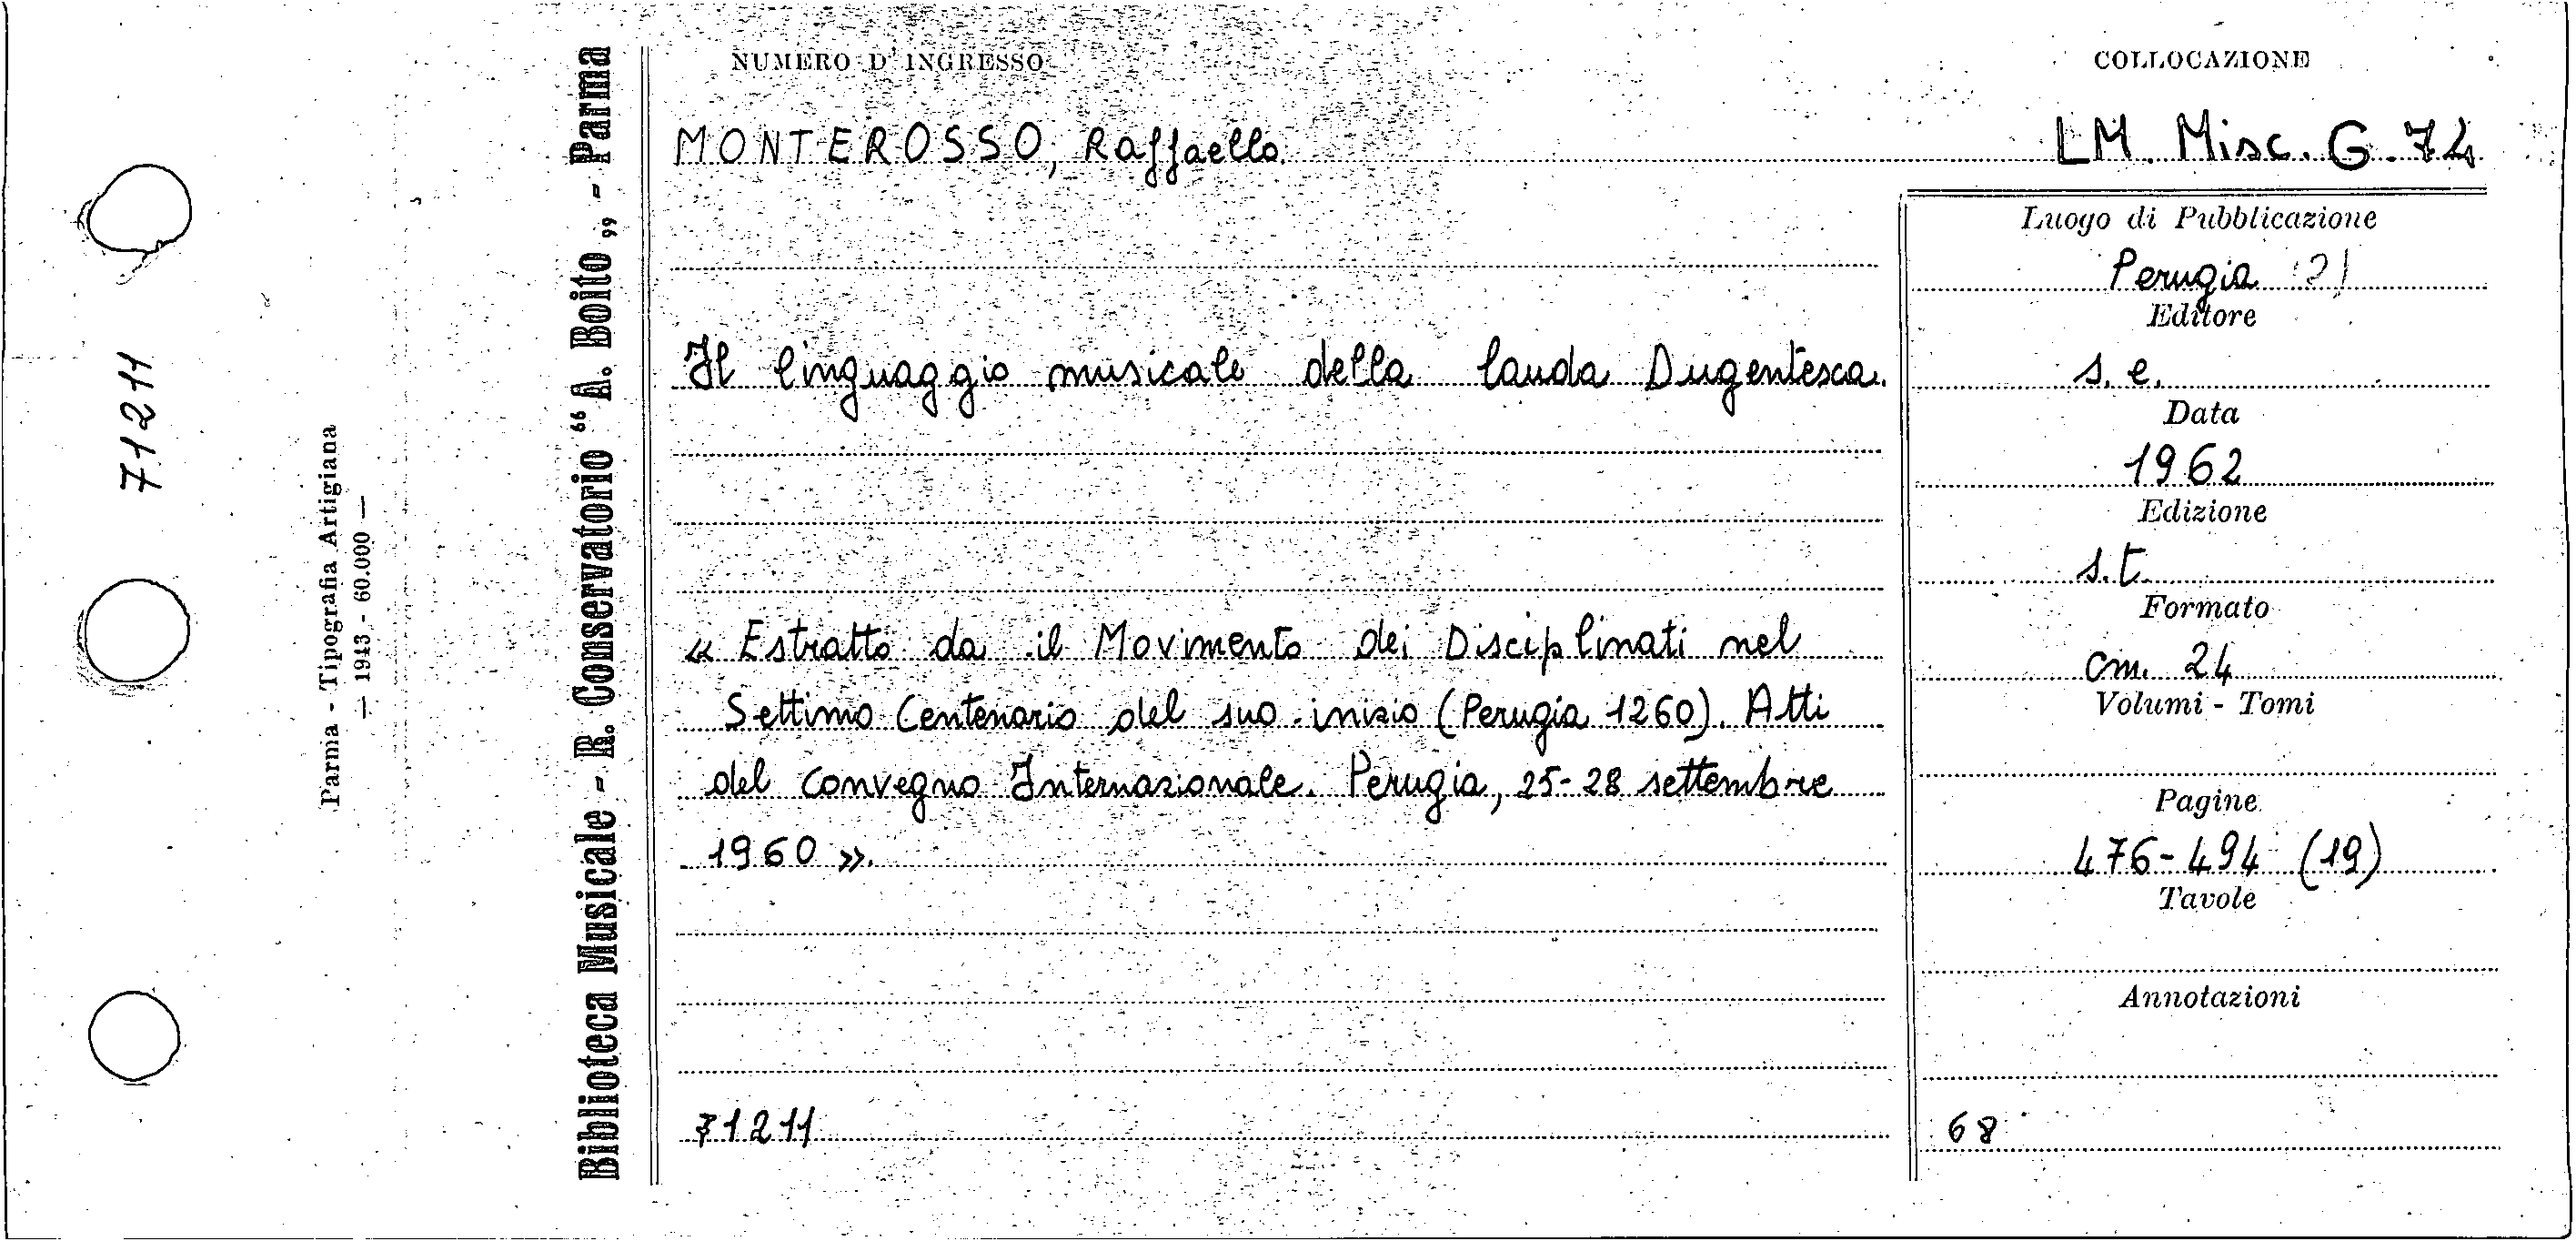 71211
Parma - Tipografia Artigiana
— 1943 - 60.000 —
Biblioteca Musicale - R. Conservatorio “ A. Boito „ - Parma
NUMERO D' INGRESSO
COLLOCAZIONE
MONTEROSSO, Raffaello
LM. Misc. G. 74
Luogo di Pubblicazione
Perugia (?)
Editore
Il linguaggio musicale della lauda Dugentesca.
s. e.
Data
1962
Edizione
s.t.
Formato
« Estratto da il Movimento dei Disciplinati nel
cm. 24
Settimo Centenario del suo inizio (Perugia 1260). Atti
Volumi - Tomi
del convegno Internazionale. Perugia, 25-28 settembre
Pagine
1960 ».
476-494 (19)
Tavole
Annotazioni
71211
68